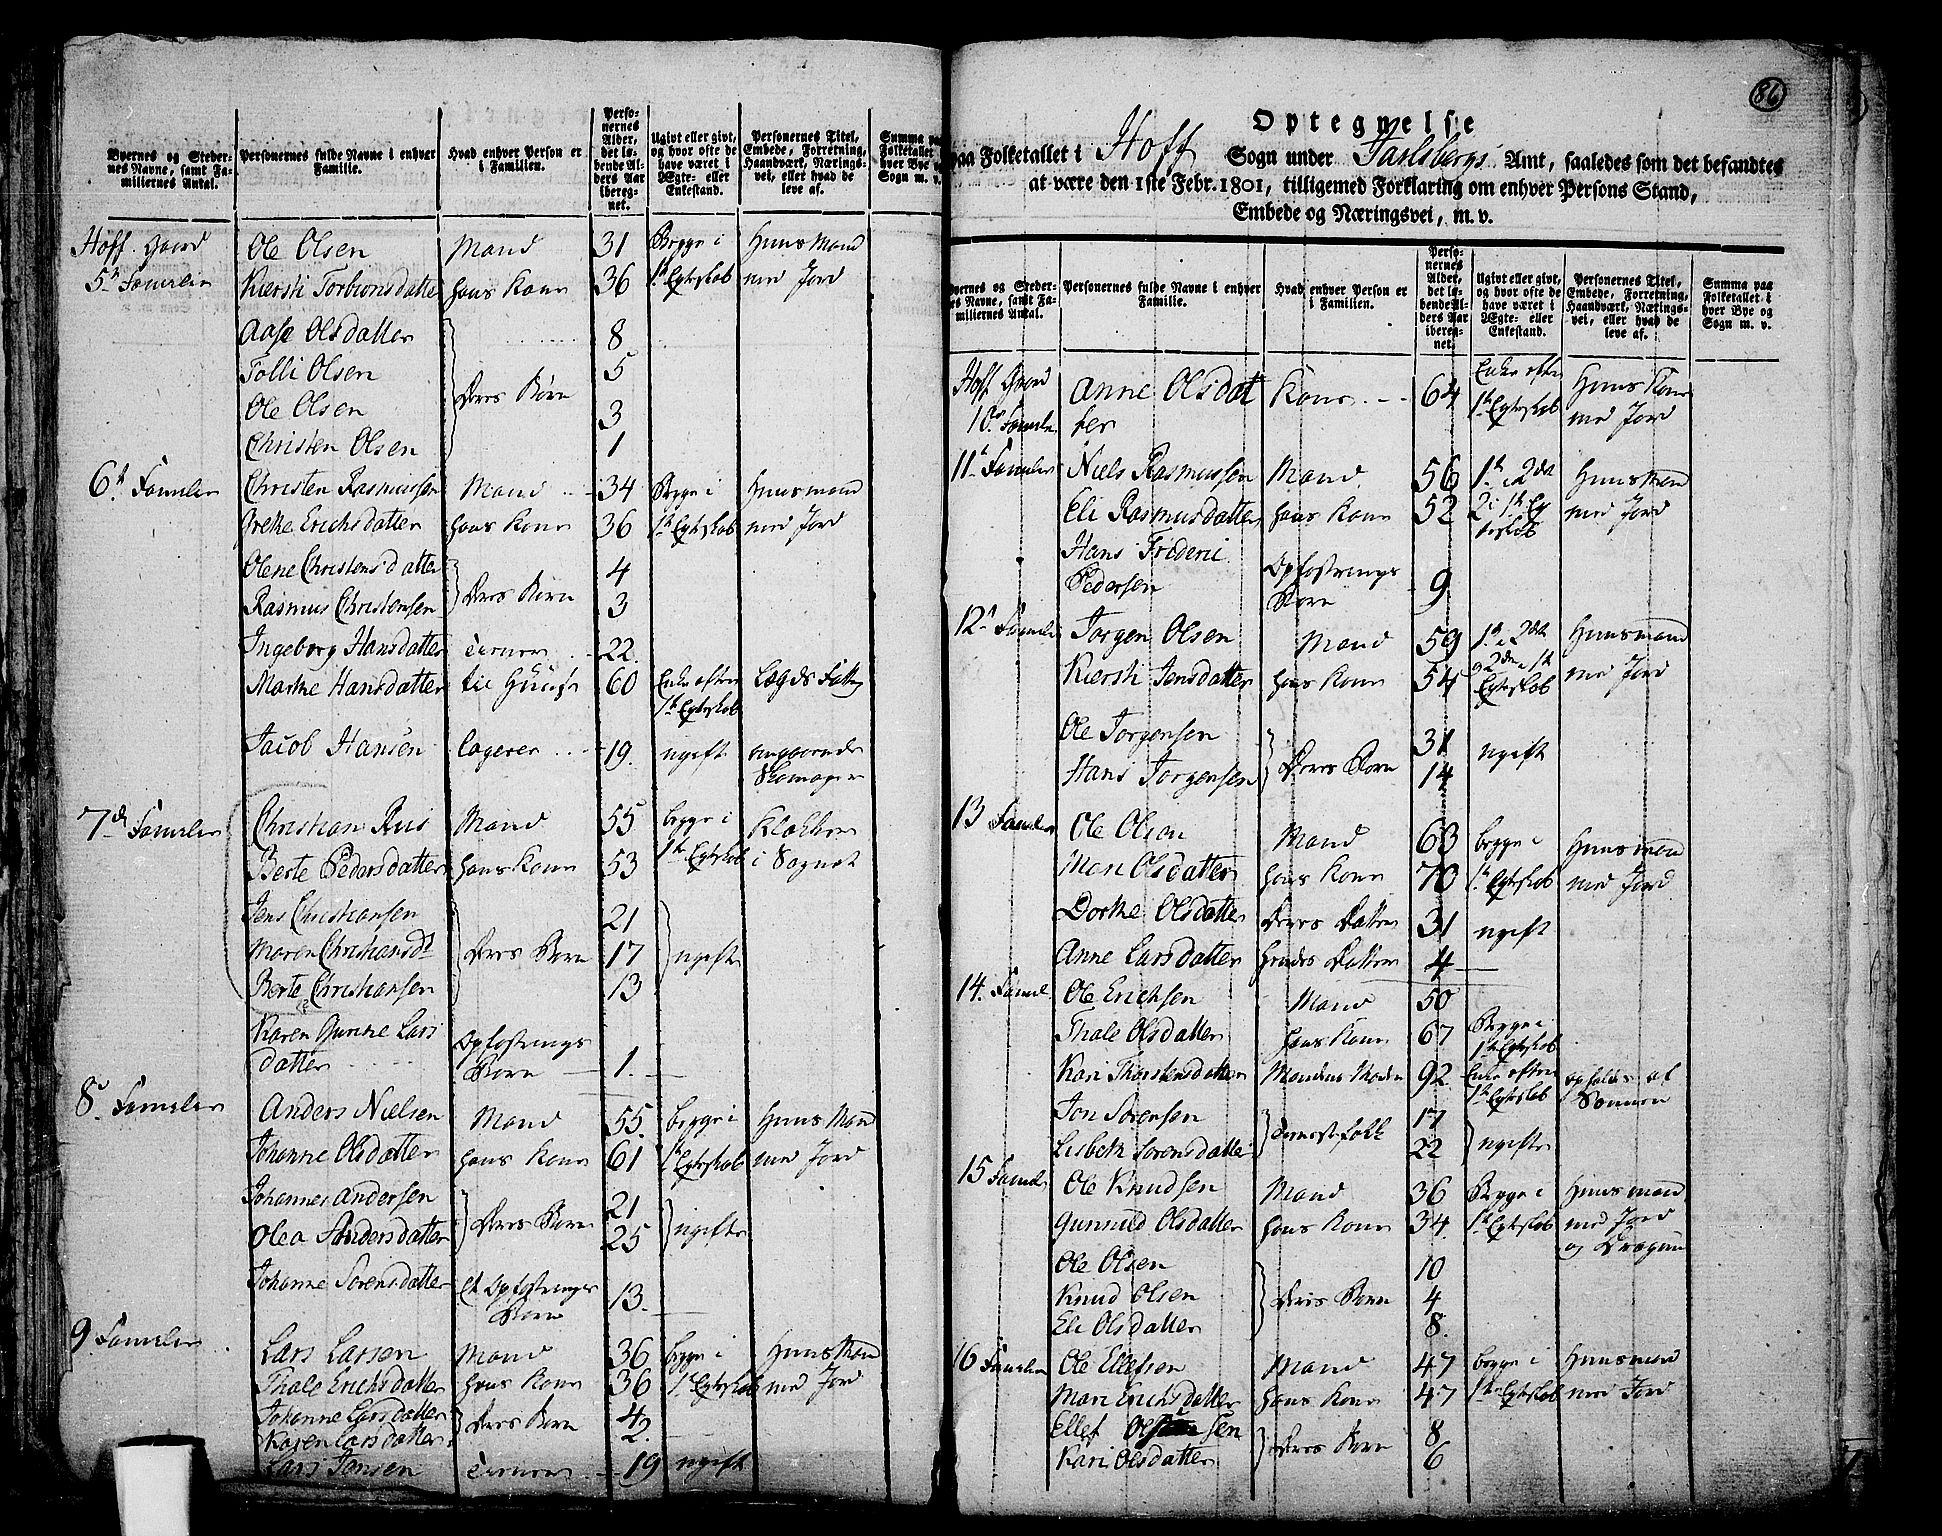 Byernes og Steder-
nes Navne, samt Fa-
miliernes Antal.
Personernes fulde Navne i enhver
Familie.
Hvad enhver Person er
i Familien.
Perso-
nernes
Alder,
det lø-
bende Al-
ders Aar
ibereg-
net.
Ugivt eller givt,
og hvor ofte de
have været i
Ægte- eller
Enkestand.
Personernes Titel,
Embede, Forretning,
Haandværk, Nærings-
vei, eller hvad de
leve af.
Summa paa
Folketallet
hver Bye og
Sogn m. v.
Hoff Gaard Ole Olsen Mand 31 Begge i Huus Mand
5te Familie Kiersti Torbionsdatter hans Kone 36 1te Egteskab med Jord
Aase Olsdatter 8
Tolli Olsen 5
Deres Børn
Ole Olsen 3
Christen Olsen 1
6te Familie Christen Rasmussen Mand 34 Begge i Huusmand
Grethe Erichsdatter hans Kone 36 1te Egteskab med Jord
Olene Christensdatter 4
Deres Børn
Rasmus Christensen 3
Ingeborg Hansdatter tienner 22
Marthe Hansdatter til Huuse 60 Enke efter Lægds Fattig
1te Egteskab
Jacob Hansen logerer 19 ugift omgaaende
Skomager
7de Familie Christian Riis Mand 55 begge i Klokker
Berte Pedersdatter hans Kone 53 1te Egteskab i Sognet
Jens Christiansen 21
Maren Christiansdt Deres Børn 17 ugifte
Berte Christiansen 13
Karen Gurine Lars
datter Opfostrings
Børn 1
8de Familie Anders Nielsen Mand 55 begge i Huus Mand
Johanne Olsdatter hans Kone 61 1te Egteskab med Jord
Johannes Andersen 21
Deres Børn ugifte
Olea Andersdatter 25
Johanne Sorensdatter et Opfostrings
Børn 13
9 Familie Lars Larsen Mand 36 begge i Huus Mand
Thale Erichsdatter hans Kone 36 1te Egteskab med Jord
Johanne Larsdatter Deres Børn 4
Karen Larsdatter 2
Lars Jansen tienner 19 ugift
86
Optegnelse
paa Folketallet i Hoff Sogn under Jarlsbergs Amt, saaledes som det befandtes
at være den 1ste Febr. 1801, tilligemed Forklaring om enhver Persons Stand,
Embede og Næringsvei, m. v.
Byernes og Steder-
nes Navne, samt Fa-
miliernes Antal.
Personernes fulde Navne i enhver
Familie.
Hvad enhver Person er
i Familien.
Perso-
nernes
Alder,
det lø-
bende Al-
ders Aar
ibereg-
net.
Ugivt eller givt,
og hvor ofte de
have været i
Ægte- eller
Enkestand.
Personernes Titel,
Embede, Forretning,
Haandværk, Nærings-
vei, eller hvad de
leve af.
Summa paa
Folketallet i
hver Bye og
Sogn m. v.
Hoff Gaard Anne Olsdat Kone 64 Enke efter Huus Kone
10de Familie ter 1te Egteskab med Jord
11te Familie Niels Rasmussen Mand 56 1te i 2det Huusmand
Eli Rasmusdatter hans Kone 52 2 i 1te Eg med Jord
teskab
Hans Frideric
Pedersen Opfostrings
Børn 9
12te Familie Jorgen Olsen Mand 59 1te i 2det Huusmand
Kiersti Jensdatter hans Kone 54 2den i 1te med Jord
Egteskab
Ole Jorgensen 31
Deres Børn ugift
Hans Jorgensen 14
13 Familie Ole Olsen Mand 63 begge i Huusmand
Mari Olsdatter hans Kone 70 1te Egteskab med Jord
Dorthe Olsdatter Deres Datter 31 ugift
Anne Larsdatter hendes Datter 4
14 Famil Ole Erichsen Mand 50
Thale Olsdatter hans Kone 67 Begge i
1te Egteskab
Kari Thorstensdatter Mandens Moder 92 Enke efter opholdes af
1te Egteskab Sønnen
Jon Sorensen 17
tienestefolk ugifte
Lisbeth Sorensdatter 22
15 Famil Ole Knudsen Mand 36 Begge i Huusmand
Gunnild Olsdatter hans Kone 34 1te Egteskab med Jord
og Dragun
Ole Olsen 10
Knud Olsen Deres Børn 4
Eli Olsdatter 8
16 Familie Ole Ellefsen Mand 47 begge i Huusmand
Mari Erichsdatter hans Kone 47 1te Egteskab med Jord
Ellef Olsen 8
Deres Børn
Kari Olsdatter 6